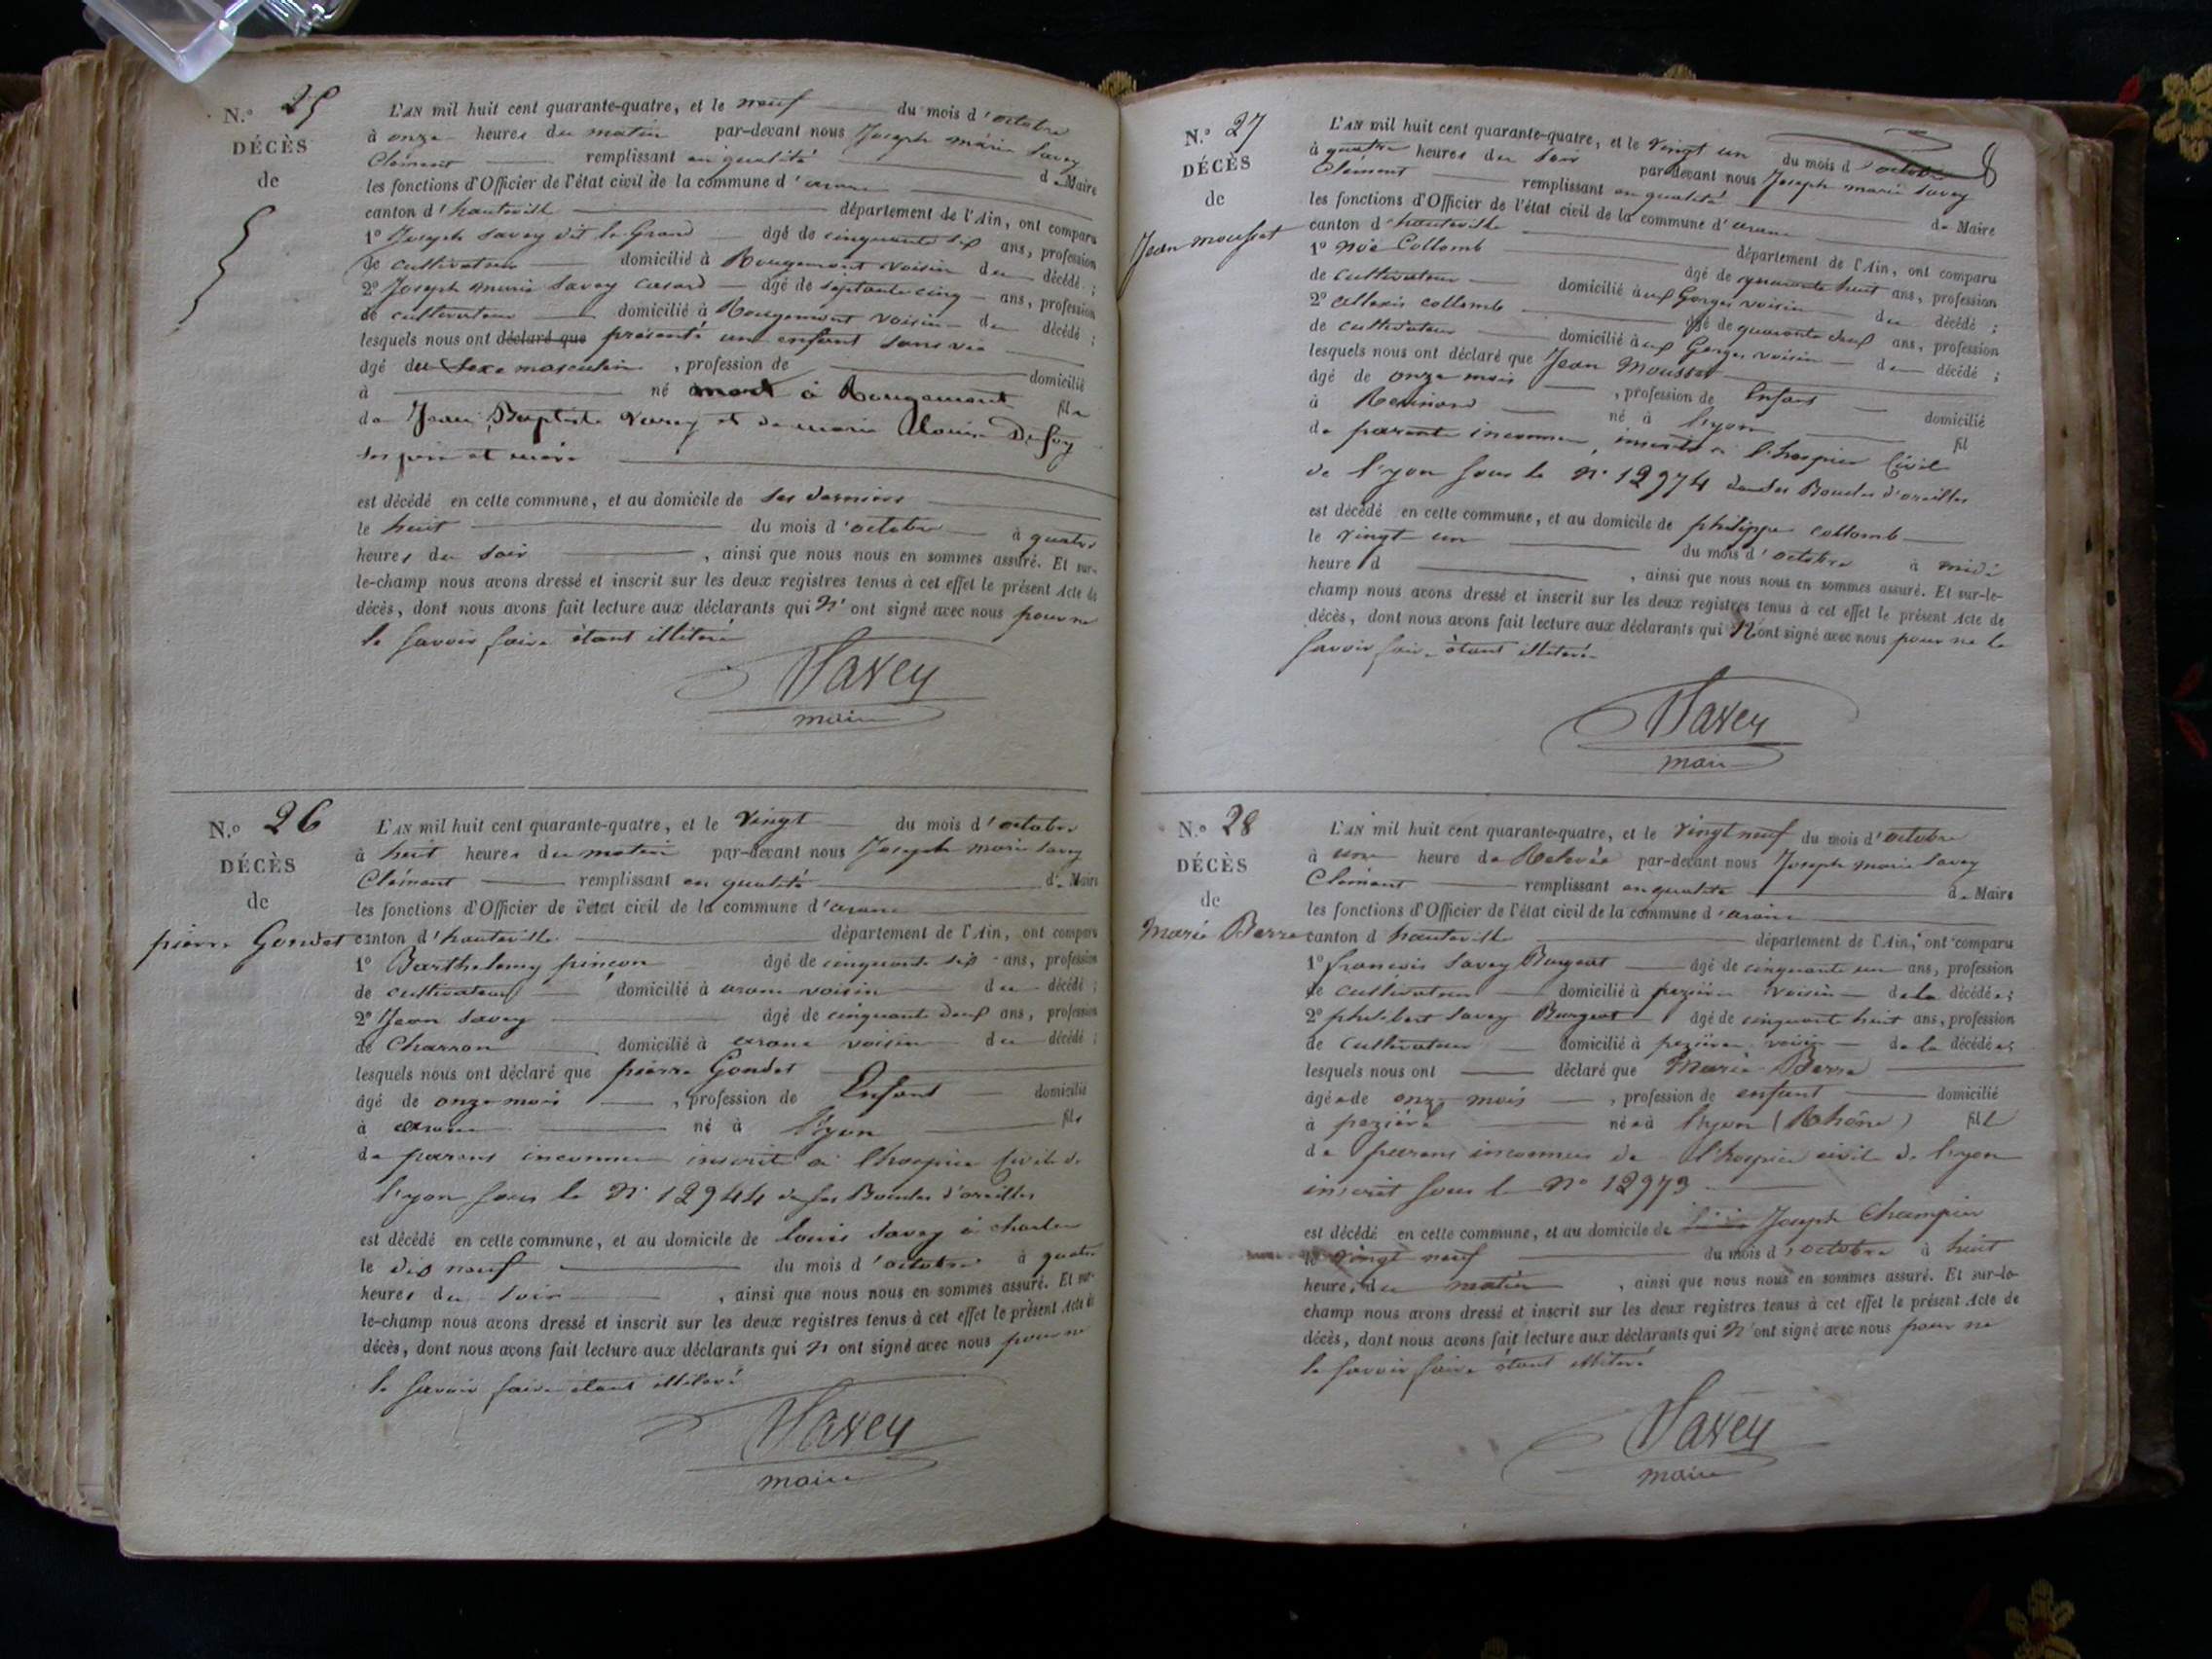 N.° 25
DÉCÈS
de
L'AN mil huit cent quarante-quatre, et le neuf du mois d'octobre
à onze heures du matin par-devant nous Joseph marie Savey
Clément remplissant en qualité de Maire
les fonctions d'Officier de l'état civil de la commune d'arane
canton d'hauteville département de l'Ain, ont comparu
1° Joseph Savey dit le Grand âgé de cinquante six ans, profession
de cultivateur domicilié à Rougemont voisin du décédé ;
2° Joseph marie Savey âgé de septante cinq ans, profession
de cultivateur domicilié à Rougemont voisin du décédé ;
lesquels nous ont déclaré que présenté un enfant sans vie
âgé du Sexe masculin , profession de domicilié
à né mort à Rougemont fils
de Jean Baptiste Varey et de marie Louise
ses père et mère
est décédé en cette commune, et au domicile de ses derniers
le huit du mois d'octobre à quatre
heures du soir , ainsi que nous nous en sommes assuré. Et sur-
le-champ nous avons dressé et inscrit sur les deux registres tenus à cet effet le présent Acte de
décès, dont nous avons fait lecture aux déclarants qui N'ont signé avec nous pour ne
le savoir faire étant illiteré
Savey
maire
N.° 26
DÉCÈS
de
pierre Gondet
L'AN mil huit cent quarante-quatre, et le vingt du mois d'octobre
à huit heures du matin par-devant nous Joseph marie Savey
Clément remplissant en qualité de Maire
les fonctions d'Officier de l'état civil de la commune d'arane
canton d'hauteville département de l'Ain, ont comparu
1° Barthelemy pinçon âgé de cinquante six ans, profession
de cultivateur domicilié à arane voisin du décédé ;
2° Jean Savey âgé de cinquante deux ans, profession
de Charron domicilié à arane voisin du décédé ;
lesquels nous ont déclaré que pierre Gondet
âgé de onze mois , profession de Enfant domicilié
à arane né à lyon fils
de parens inconnu inscrit à l'hospice Civil de
lyon sous le N° 12944 de ses Boucles d'oreilles
est décédé en cette commune, et au domicile de Louis Savey à
le dix neuf du mois d'octobre à quatre
heures du soir , ainsi que nous nous en sommes assuré. Et sur-
le-champ nous avons dressé et inscrit sur les deux registres tenus à cet effet le présent Acte de
décès, dont nous avons fait lecture aux déclarants qui N'ont signé avec nous pour ne
le savoir faire étant illiteré
Savey
maire
8
N.° 27
DÉCÈS
de
Jean mousset
L'AN mil huit cent quarante-quatre, et le vingt un du mois d'octobre
à quatre heures du soir par-devant nous Joseph marie Savey
Clément remplissant en qualité de Maire
les fonctions d'Officier de l'état civil de la commune d'arane
canton d'hauteville département de l'Ain, ont comparu
1° Noé Collomb âgé de quarante huit ans, profession
de cultivateur domicilié aux Gorges voisin du décédé ;
2° allexis collomb âgé de quarante deux ans, profession
de cultivateur domicilié aux Gorges voisin du décédé ;
lesquels nous ont déclaré que Jean Mousset
âgé de onze mois , profession de Enfant domicilié
à né à lyon fil
de parents inconnu, inscrit à l'hospice Civil
de lyon sous le N° 12974 de ses Boucles d'oreilles
est décédé en cette commune, et au domicile de philippe collomb
le vingt un du mois d'octobre à midi
heure d , ainsi que nous nous en sommes assuré. Et sur-le-
champ nous avons dressé et inscrit sur les deux registres tenus à cet effet le présent Acte de
décès, dont nous avons fait lecture aux déclarants qui N'ont signé avec nous pour ne le
savoir faire étant illiteré
Savey
maire
N.° 28
DÉCÈS
de
Marie Berre
L'AN mil huit cent quarante-quatre, et le vingt neuf du mois d'octobre
à une heure de Relevée par-devant nous Joseph marie Savey
Clément remplissant en qualité de Maire
les fonctions d'Officier de l'état civil de la commune d'arane
canton d hauteville département de l'Ain, ont comparu
1° françois Savey Burgeat âgé de cinquante un ans, profession
de cultivateur domicilié à pezière voisin de la décédée ;
2° philibert Savey Burgeat âgé de cinquante huit ans, profession
de cultivateur domicilié à pezière voisin de la décédée ;
lesquels nous ont déclaré que Marie Berre
âgée de onze mois , profession de enfant domicilié
à pezière née à lyon (Rhône) fill
de parens inconnus de l'hospice civile de lyon
inscrit sous le N° 12973
est décédé en cette commune, et au domicile de Joseph Champion
le vingt neuf du mois d'octobre à huit
heures du matin , ainsi que nous nous en sommes assuré. Et sur-le-
champ nous avons dressé et inscrit sur les deux registres tenus à cet effet le présent Acte de
décès, dont nous avons fait lecture aux déclarants qui N'ont signé avec nous pour ne
le savoir faire étant illiteré
Savey
maire